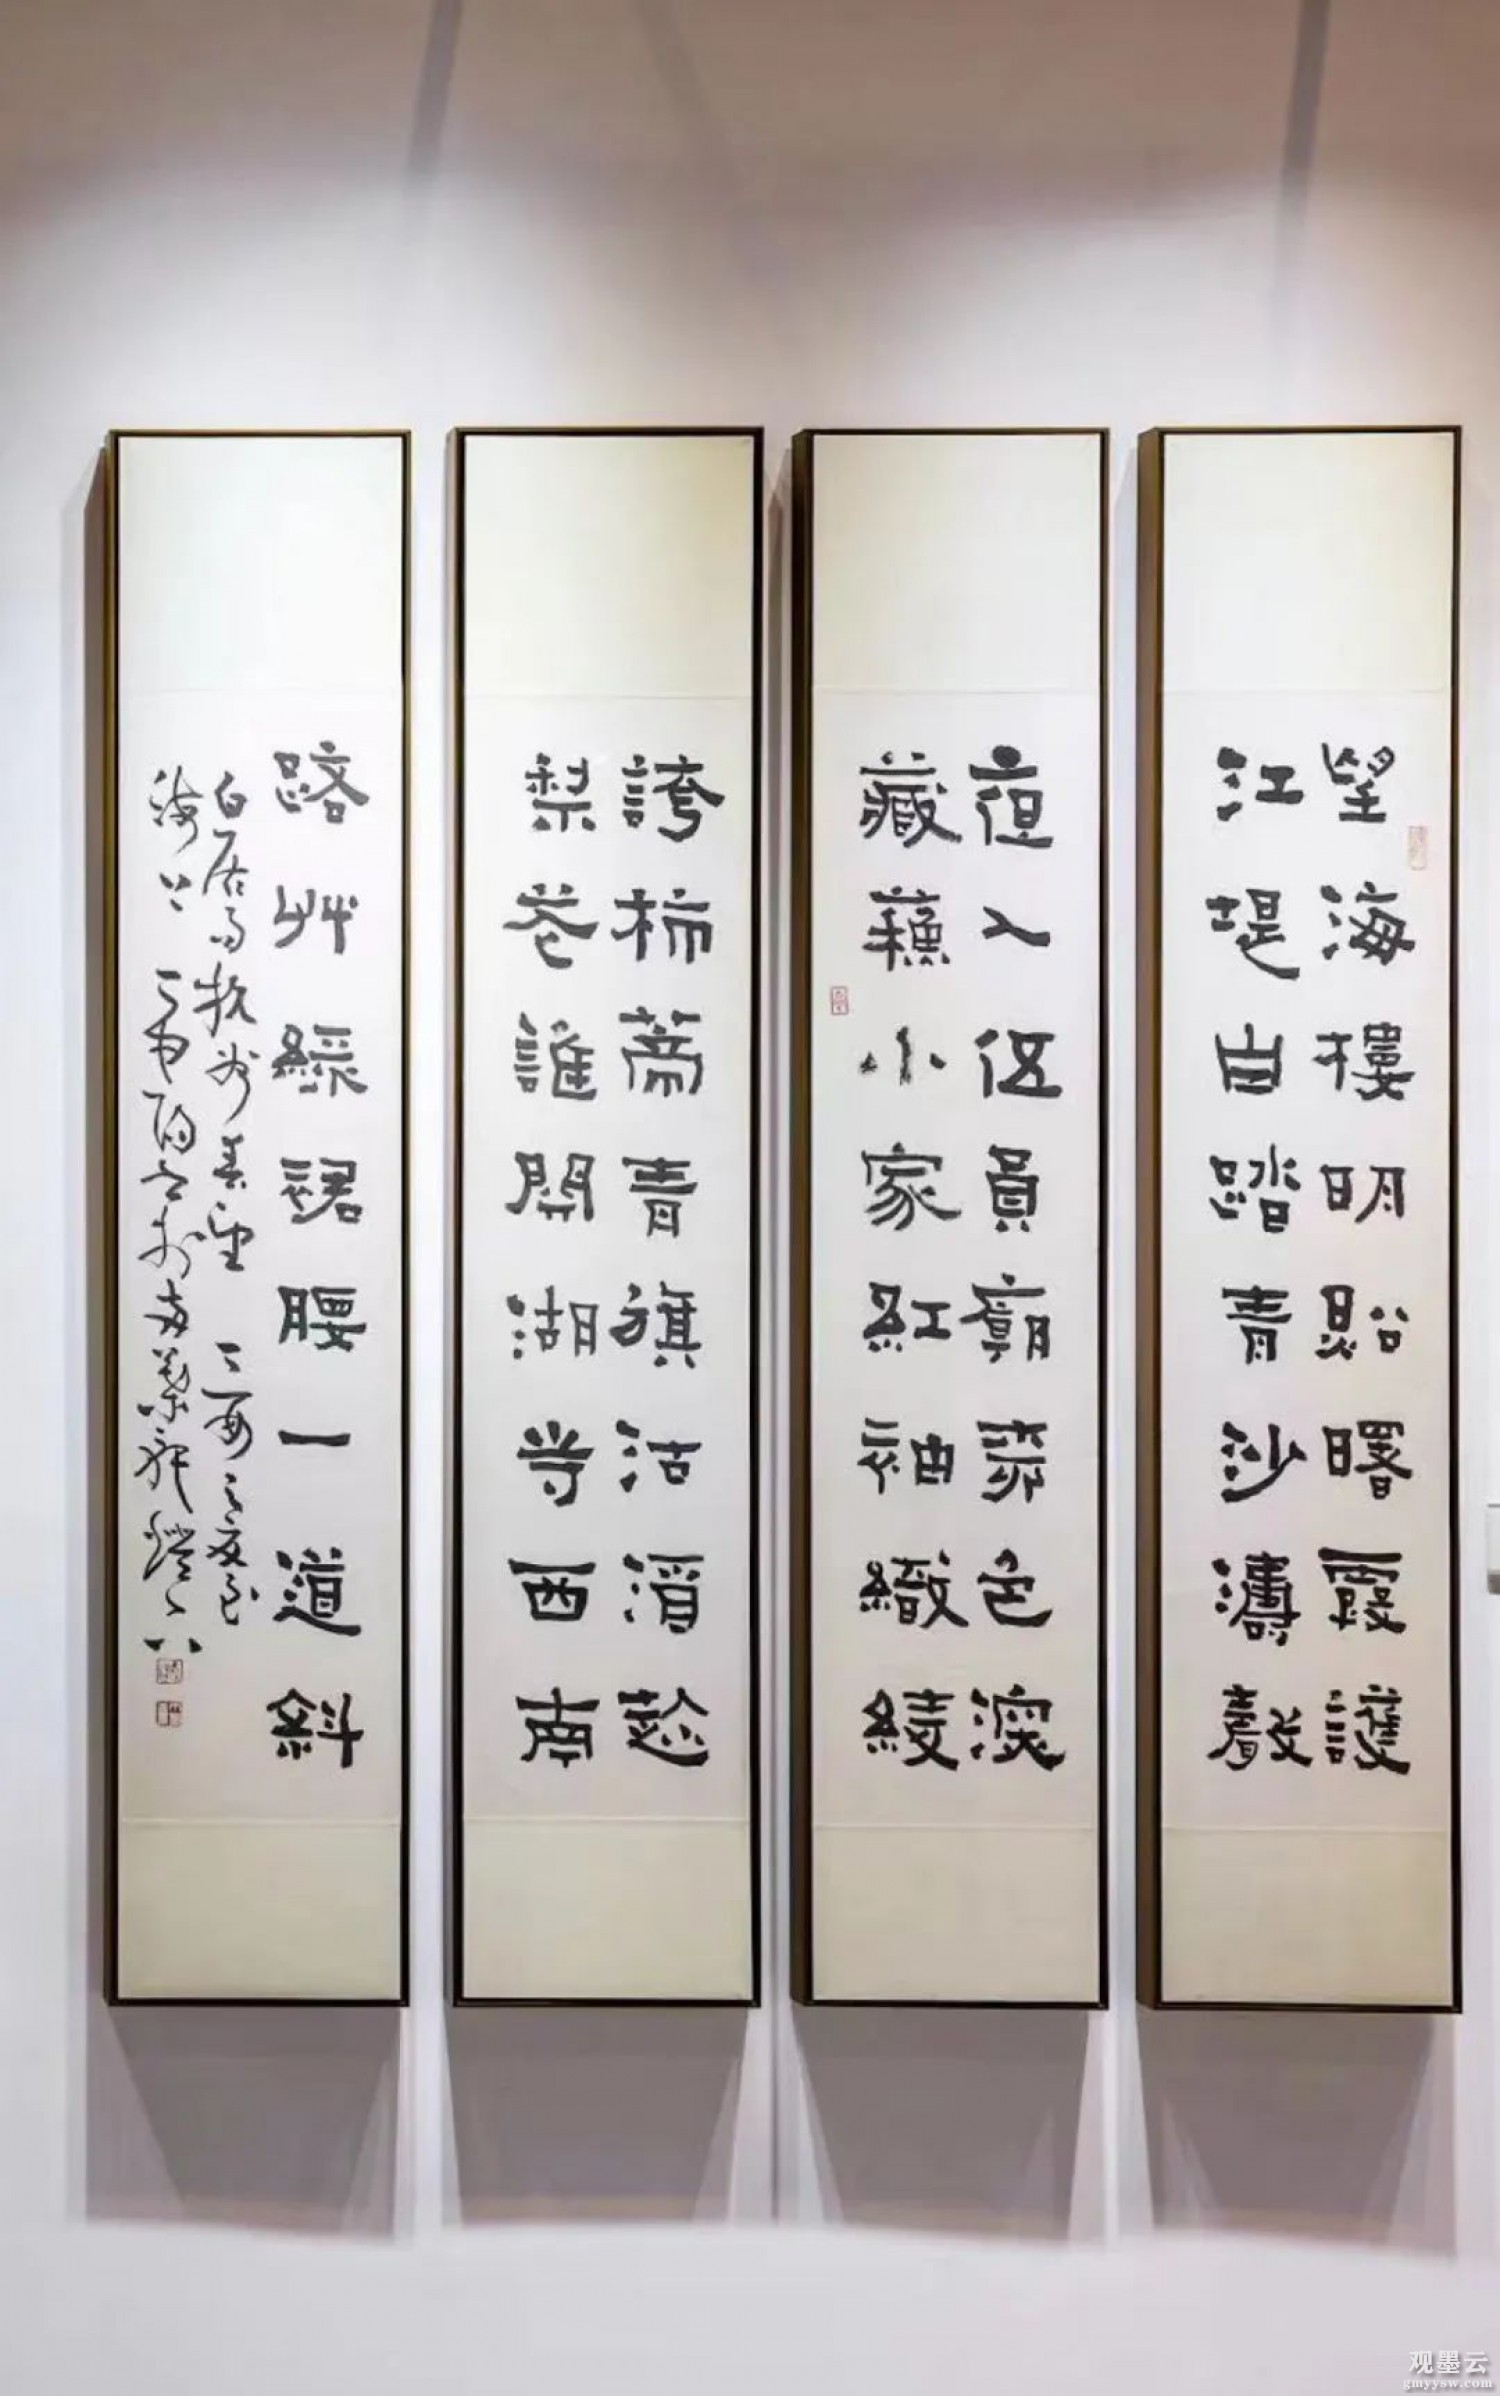 望海樓明照曙霞護
江堤白踏青沙濤聲
夜入伍員廟柳色春
藏蘇小家紅袖織綾
誇柿蒂青旗沽酒趁
梨花誰開湖寺西南
路艸綠裙腰一道斜
白居易杭州春望
观墨云
gmyysw.com